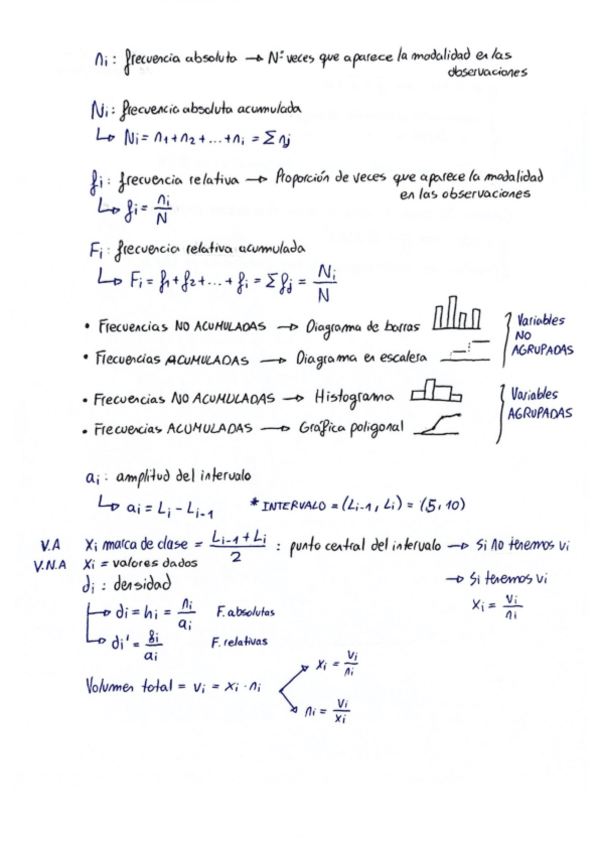 ni : frecuencia absoluta → Nº veces que aparece la modalidad en las
observaciones
Ni : frecuencia absoluta acumulada
↳ Ni = n1 + n2 + ... + ni = Σ nj
fi : frecuencia relativa → Proporción de veces que aparece la modalidad
en las observaciones
↳ fi = ni / N
Fi : frecuencia relativa acumulada
↳ Fi = f1 + f2 + ... + fi = Σ fj = Ni / N
• Frecuencias NO ACUMULADAS → Diagrama de barras
• Frecuencias ACUMULADAS → Diagrama en escalera
Variables
NO
AGRUPADAS
• Frecuencias NO ACUMULADAS → Histograma
• Frecuencias ACUMULADAS → Gráfica poligonal
Variables
AGRUPADAS
ai : amplitud del intervalo
↳ ai = Li - Li-1 * INTERVALO = (Li-1, Li) = (5, 10)
V.A xi marca de clase = Li-1 + Li / 2 : punto central del intervalo → Si no tenemos vi
V.N.A xi = valores dados → Si tenemos vi
xi = vi / ni
di : densidad
↳ di = hi = ni / ai F. absolutas
↳ di' = fi / ai F. relativas
Volumen total = vi = xi · ni
xi = vi / ni
ni = vi / xi